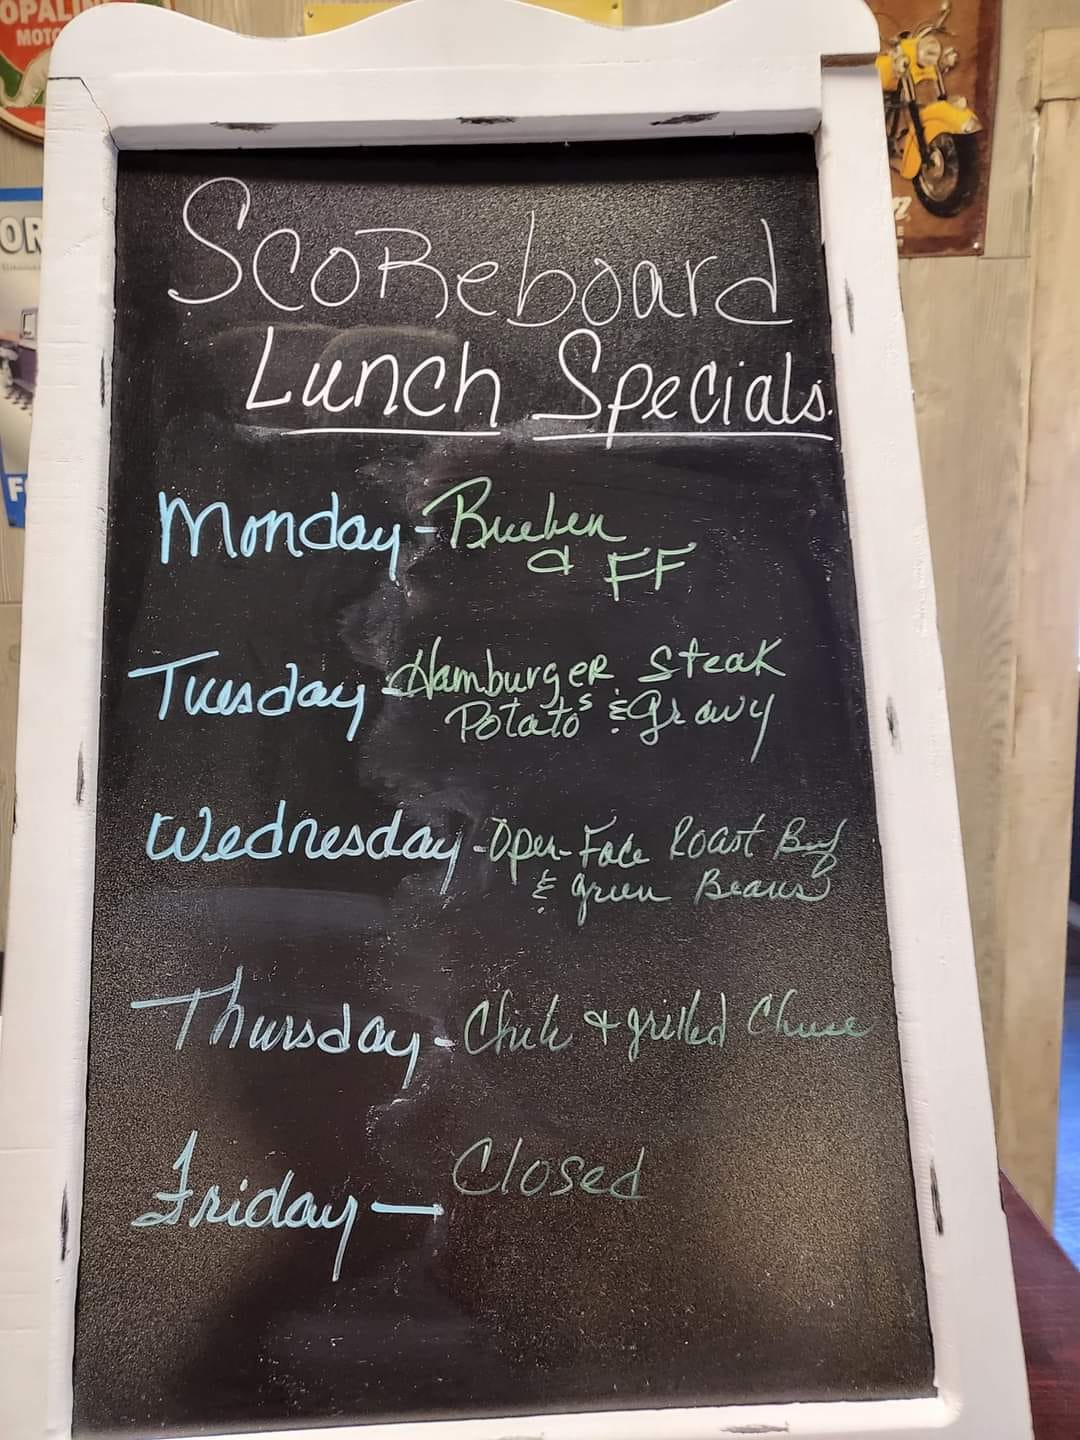 OPALIN
MOTO
OR
F
Scoreboard
Lunch Specials.
Monday - Rueben
& FF
Tuesday - Hamburger Steak
Potato's & Gravy
Wednesday - Open-Face Roast Beef
& green Beans
Thursday - Chili & grilled Cheese
Friday — Closed